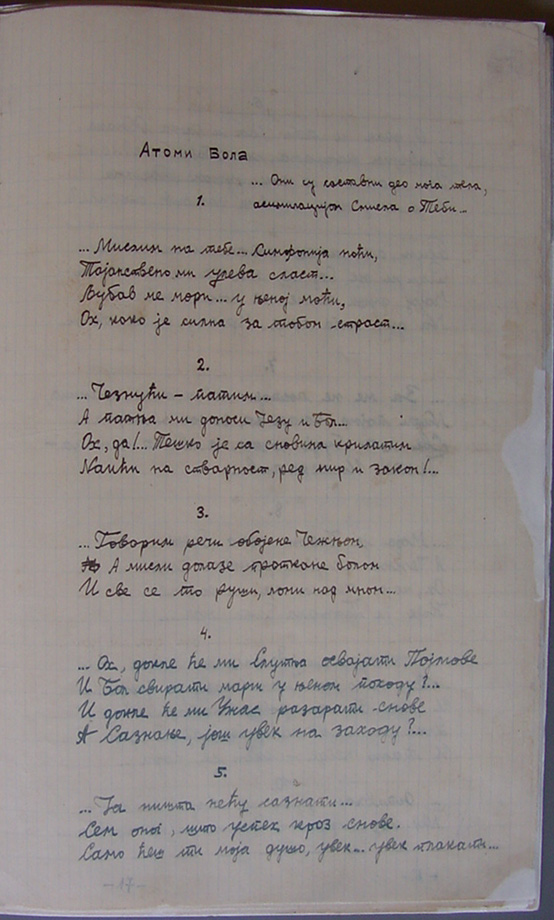 Атоми Бола
... Они су саставни део мога тела,
1.
асимилација Смисла о Теби...
... Мислим на тебе... Симфонија ноћи,
Тајанствено ми улева сласт...
Љубав ме мори... у њеној моћи,
Ох, како је силна за тобом страст...
2.
... Чезнући – патим...
А патња ми доноси Језу и Бол...
Ох, да!... Тешко је са сновима крилатим
Наићи на стварност, ред мир и закон!...
3.
... Говорим речи обојене Чежњом
А мисли долазе проткане болом
И све се то руши, ломи под мном...
4.
... Ох, докле ће ми Слутња освајати Појмове
И Бол свирати марш у њеном походу?!...
И докле ће ми Ужас разарати снове
А Сазнање, још увек на заходу?!...
5.
... Ја ништа нећу сазнати...
Сем оног, што успех кроз снове.
Само ћеш ти моја душо, увек... увек плакати...